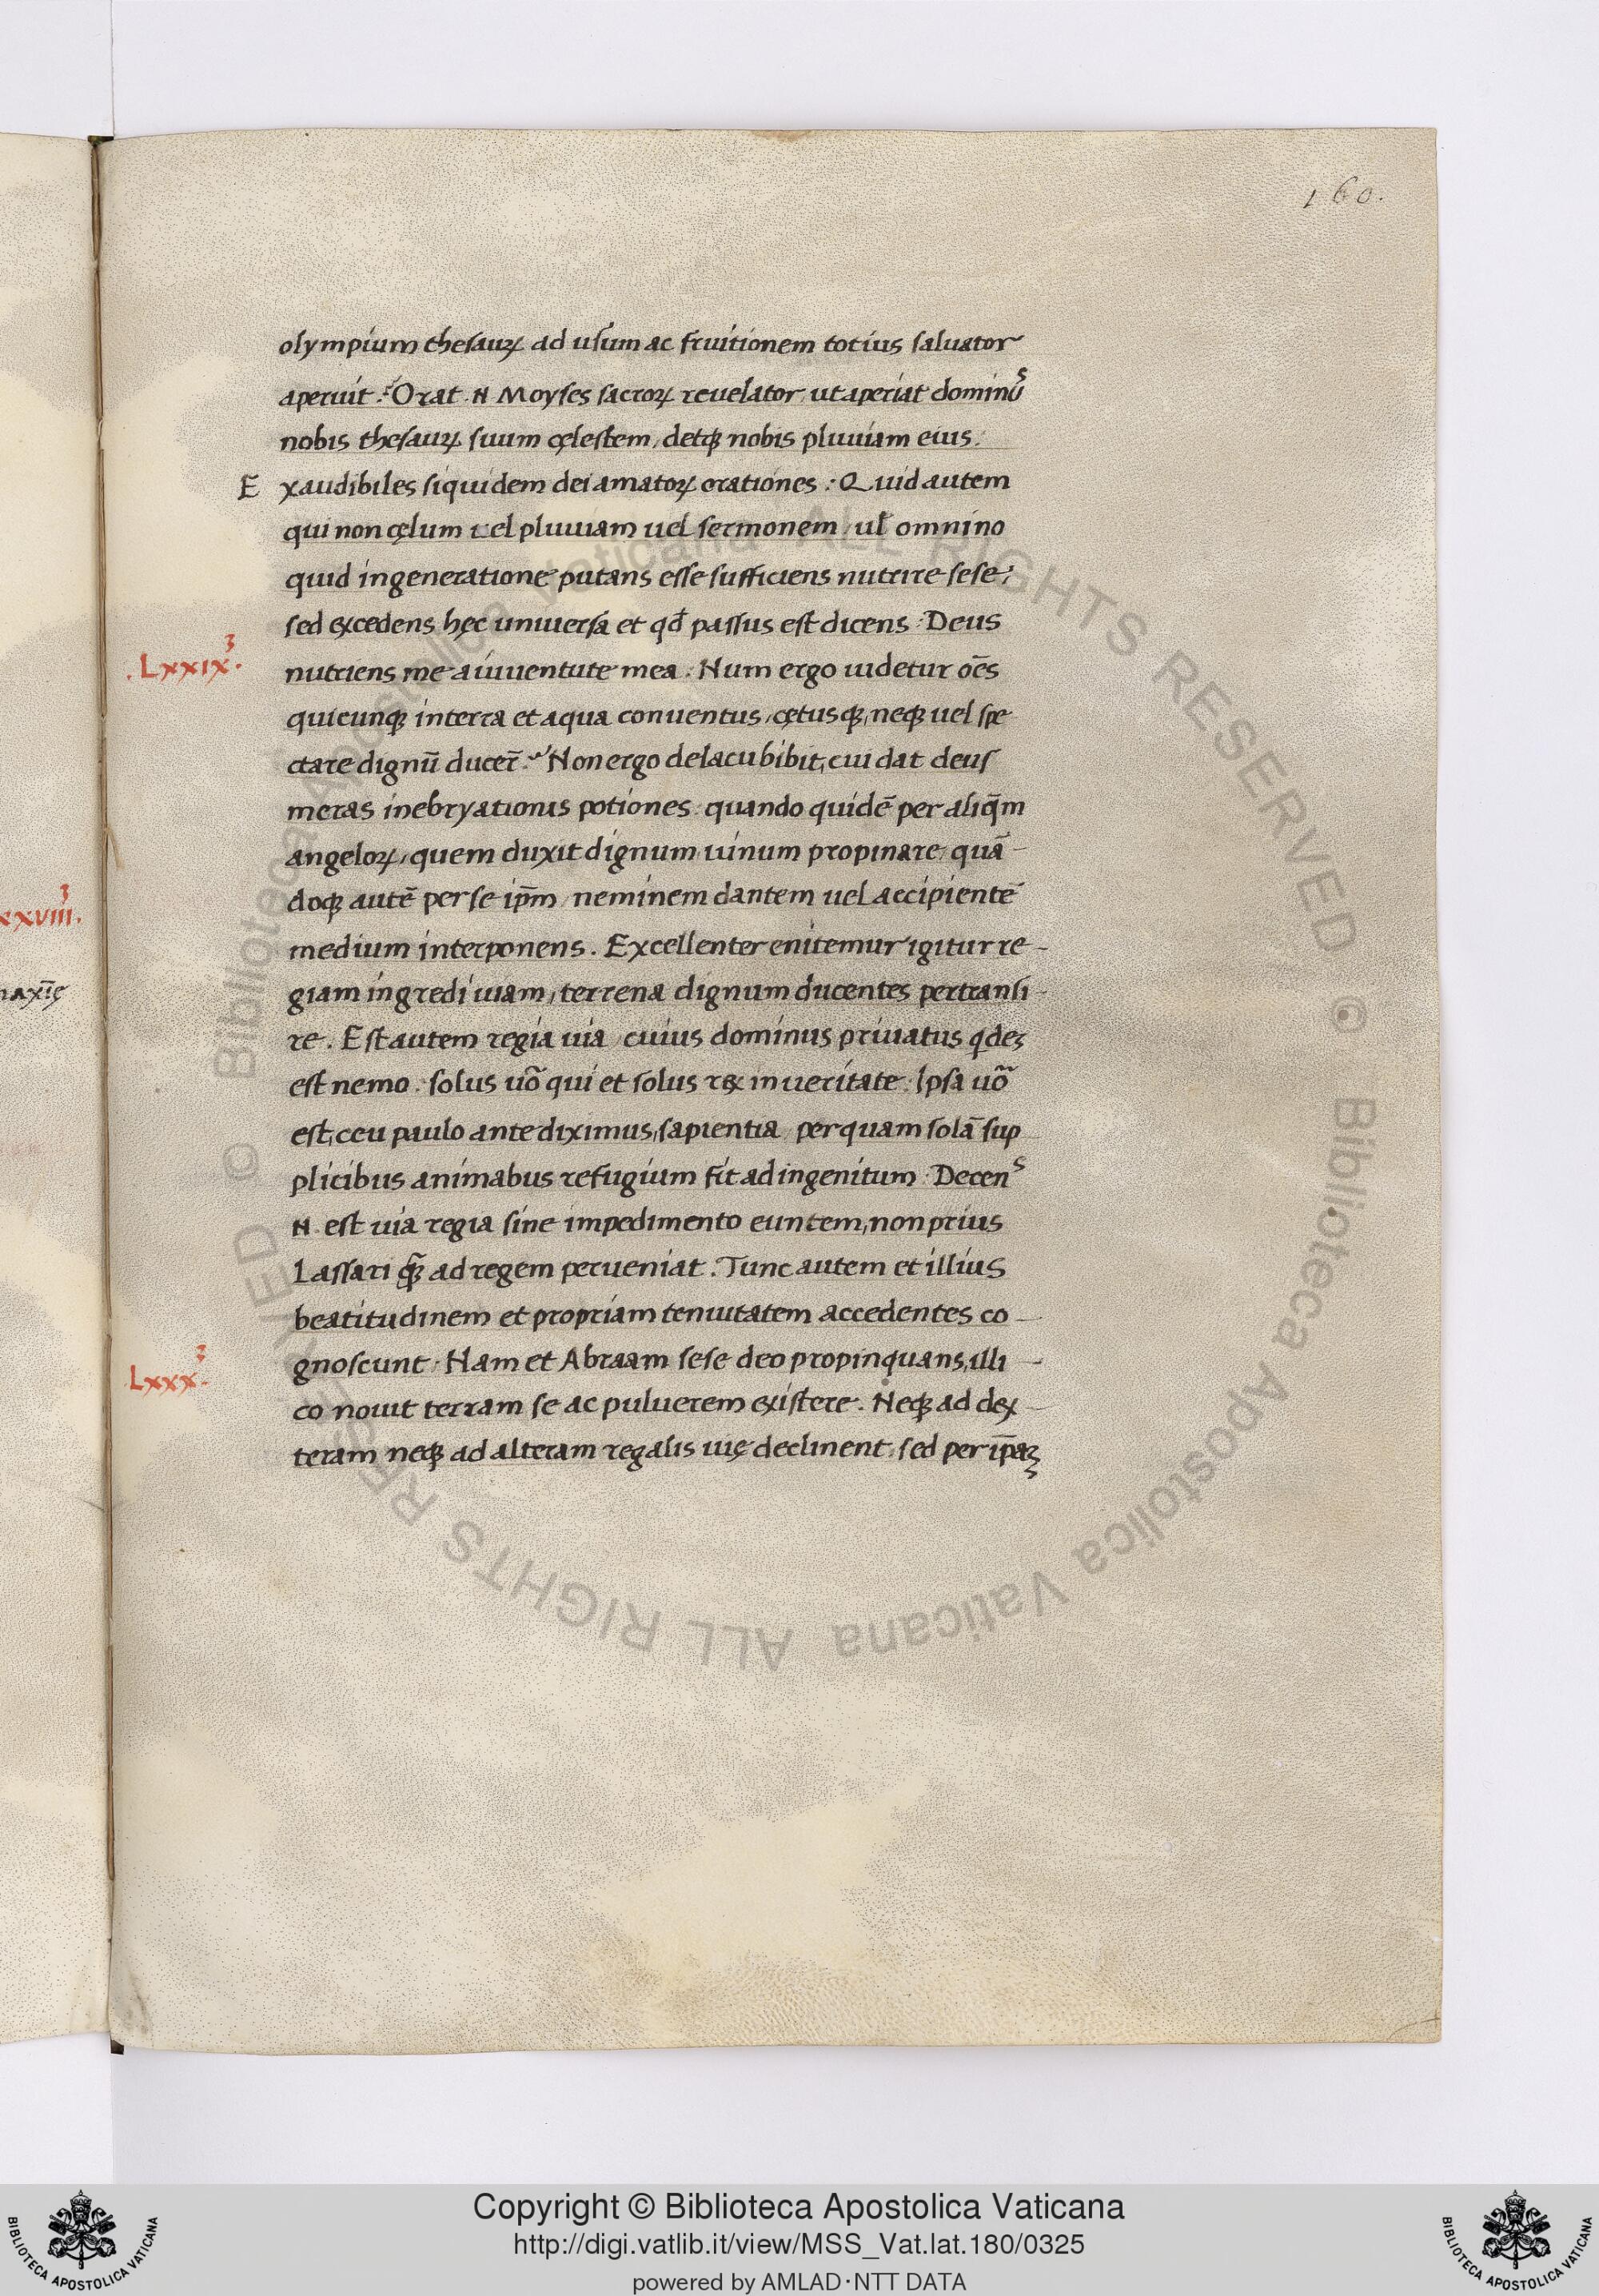 160.
olympium thesauꝝ ad usum ac fruitionem totius saluator
aperuit. Orat .N. Moyses sacroꝝ reuelator, ut aperiat dominus
nobis thesauꝝ suum cęlestem, detqꝫ nobis pluuiam eius.
Exaudibiles siquidem dei amatoꝝ orationes: Quid autem
qui non cęlum uel pluuiam uel sermonem, ul̄ omnino
quid in generatione putans esse sufficiens nutrire sese;
sed excedens hęc uniuersa et qđ passus est dicens: Deus
.Lxxix.³
nutriens me a iuuentute mea. Num ergo uidetur oēs
quicunqꝫ in terra et aqua conuentus, cętusqꝫ, neqꝫ uel spe
ctare dignū ducer̄. Non ergo de lacu bibit, cui dat deus
meras inebryationis potiones. quando quidē per aliq̄m
angeloꝝ, quem duxit dignum uinum propinare, quā-
doqꝫ autē per se ip̄m, neminem dantem uel accipientē
medium interponens. Excellenter enitemur igitur re-
giam ingredi uiam, terrena dignum ducentes pertransi-
re. Est autem regia uia, cuius dominus priuatus qdeꝫ
est nemo. solus uō qui et solus rex in ueritate. Ipsa uō
est, ceu paulo ante diximus, sapientia, per quam solā sup
plicibus animabus refugium fit ad ingenitum. Decens
.N. est uia regia sine impedimento euntem, non prius
Lassari qꝫ̄ ad regem perueniat. Tunc autem et illius
beatitudinem et propriam tenuitatem accedentes co-
gnoscunt. Nam et Abraam sese deo propinquans, illi-
.Lxxx.³
co nouit terram se ac puluerem existere. Neqꝫ ad dex-
teram neqꝫ ad alteram regalis uię declinent, sed per ip̄aꝫ
xxviii.³
maxīę
Copyright © Biblioteca Apostolica Vaticana
http://digi.vatlib.it/view/MSS_Vat.lat.180/0325
powered by AMLAD·NTT DATA
BIBLIOTECA APOSTOLICA VATICANA
BIBLIOTECA APOSTOLICA VATICANA
© Biblioteca Apostolica Vaticana ALL RIGHTS RESERVED © Biblioteca Apostolica Vaticana ALL RIGHTS RESERVED